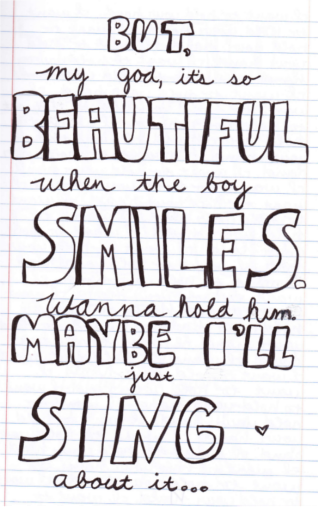 BUT,
my god, it's so
BEAUTIFUL
when the boy
SMILES.
Wanna hold him.
MAYBE I'LL
just
SING
about it...